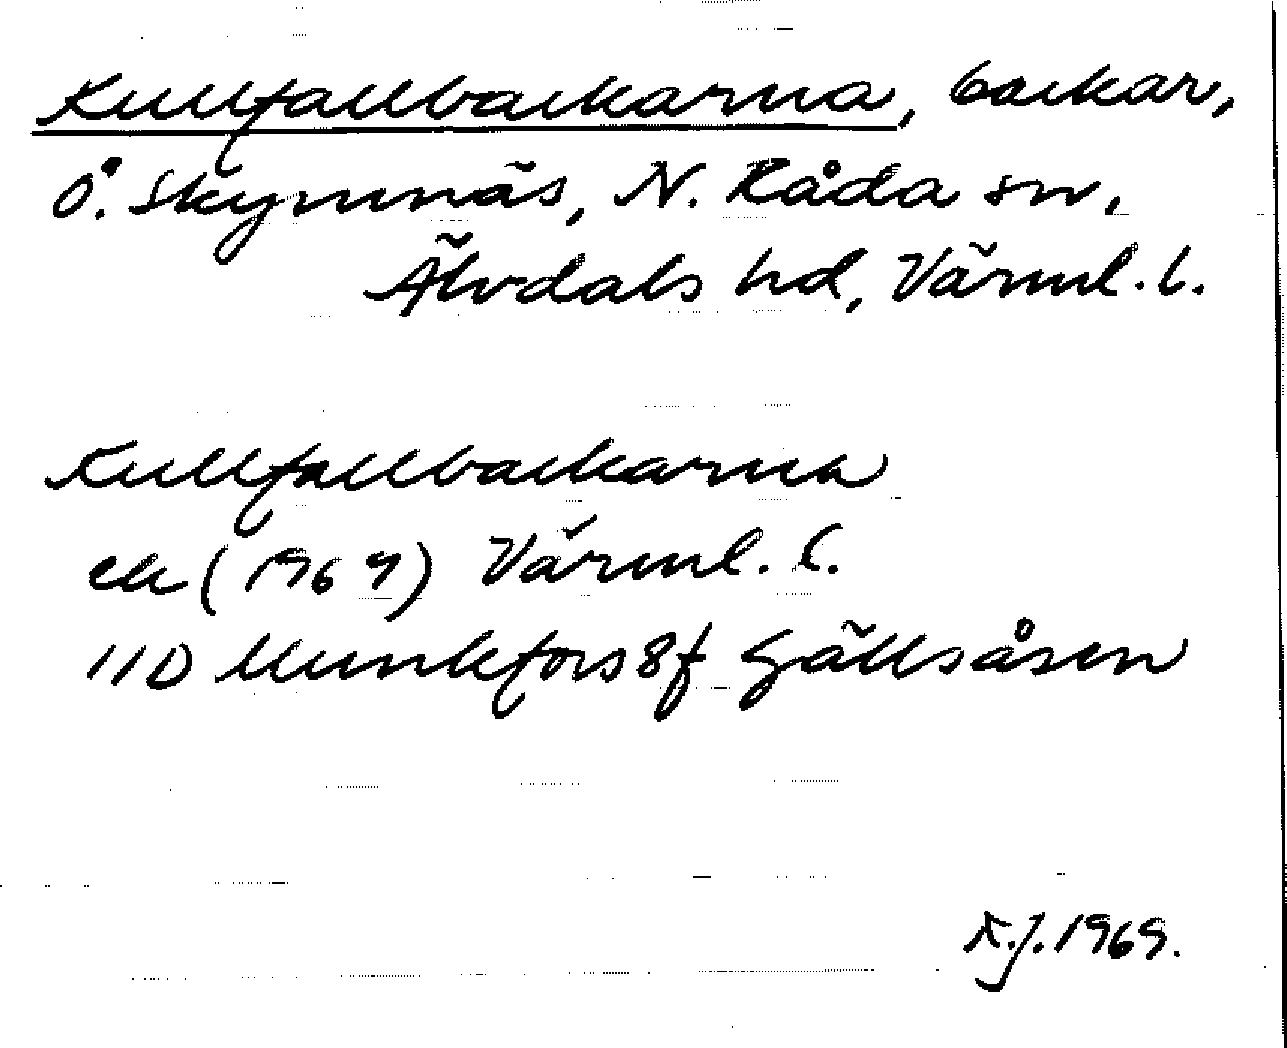 Kullfallbackarna, backar,
Ö. Skymnäs, N. Råda sn,
Älvdals hd, Värml. l.
Kullfallbackarna
ek (1969) Värml. l.
11D Munkfors 8f Gällsåsen
K.J. 1969.